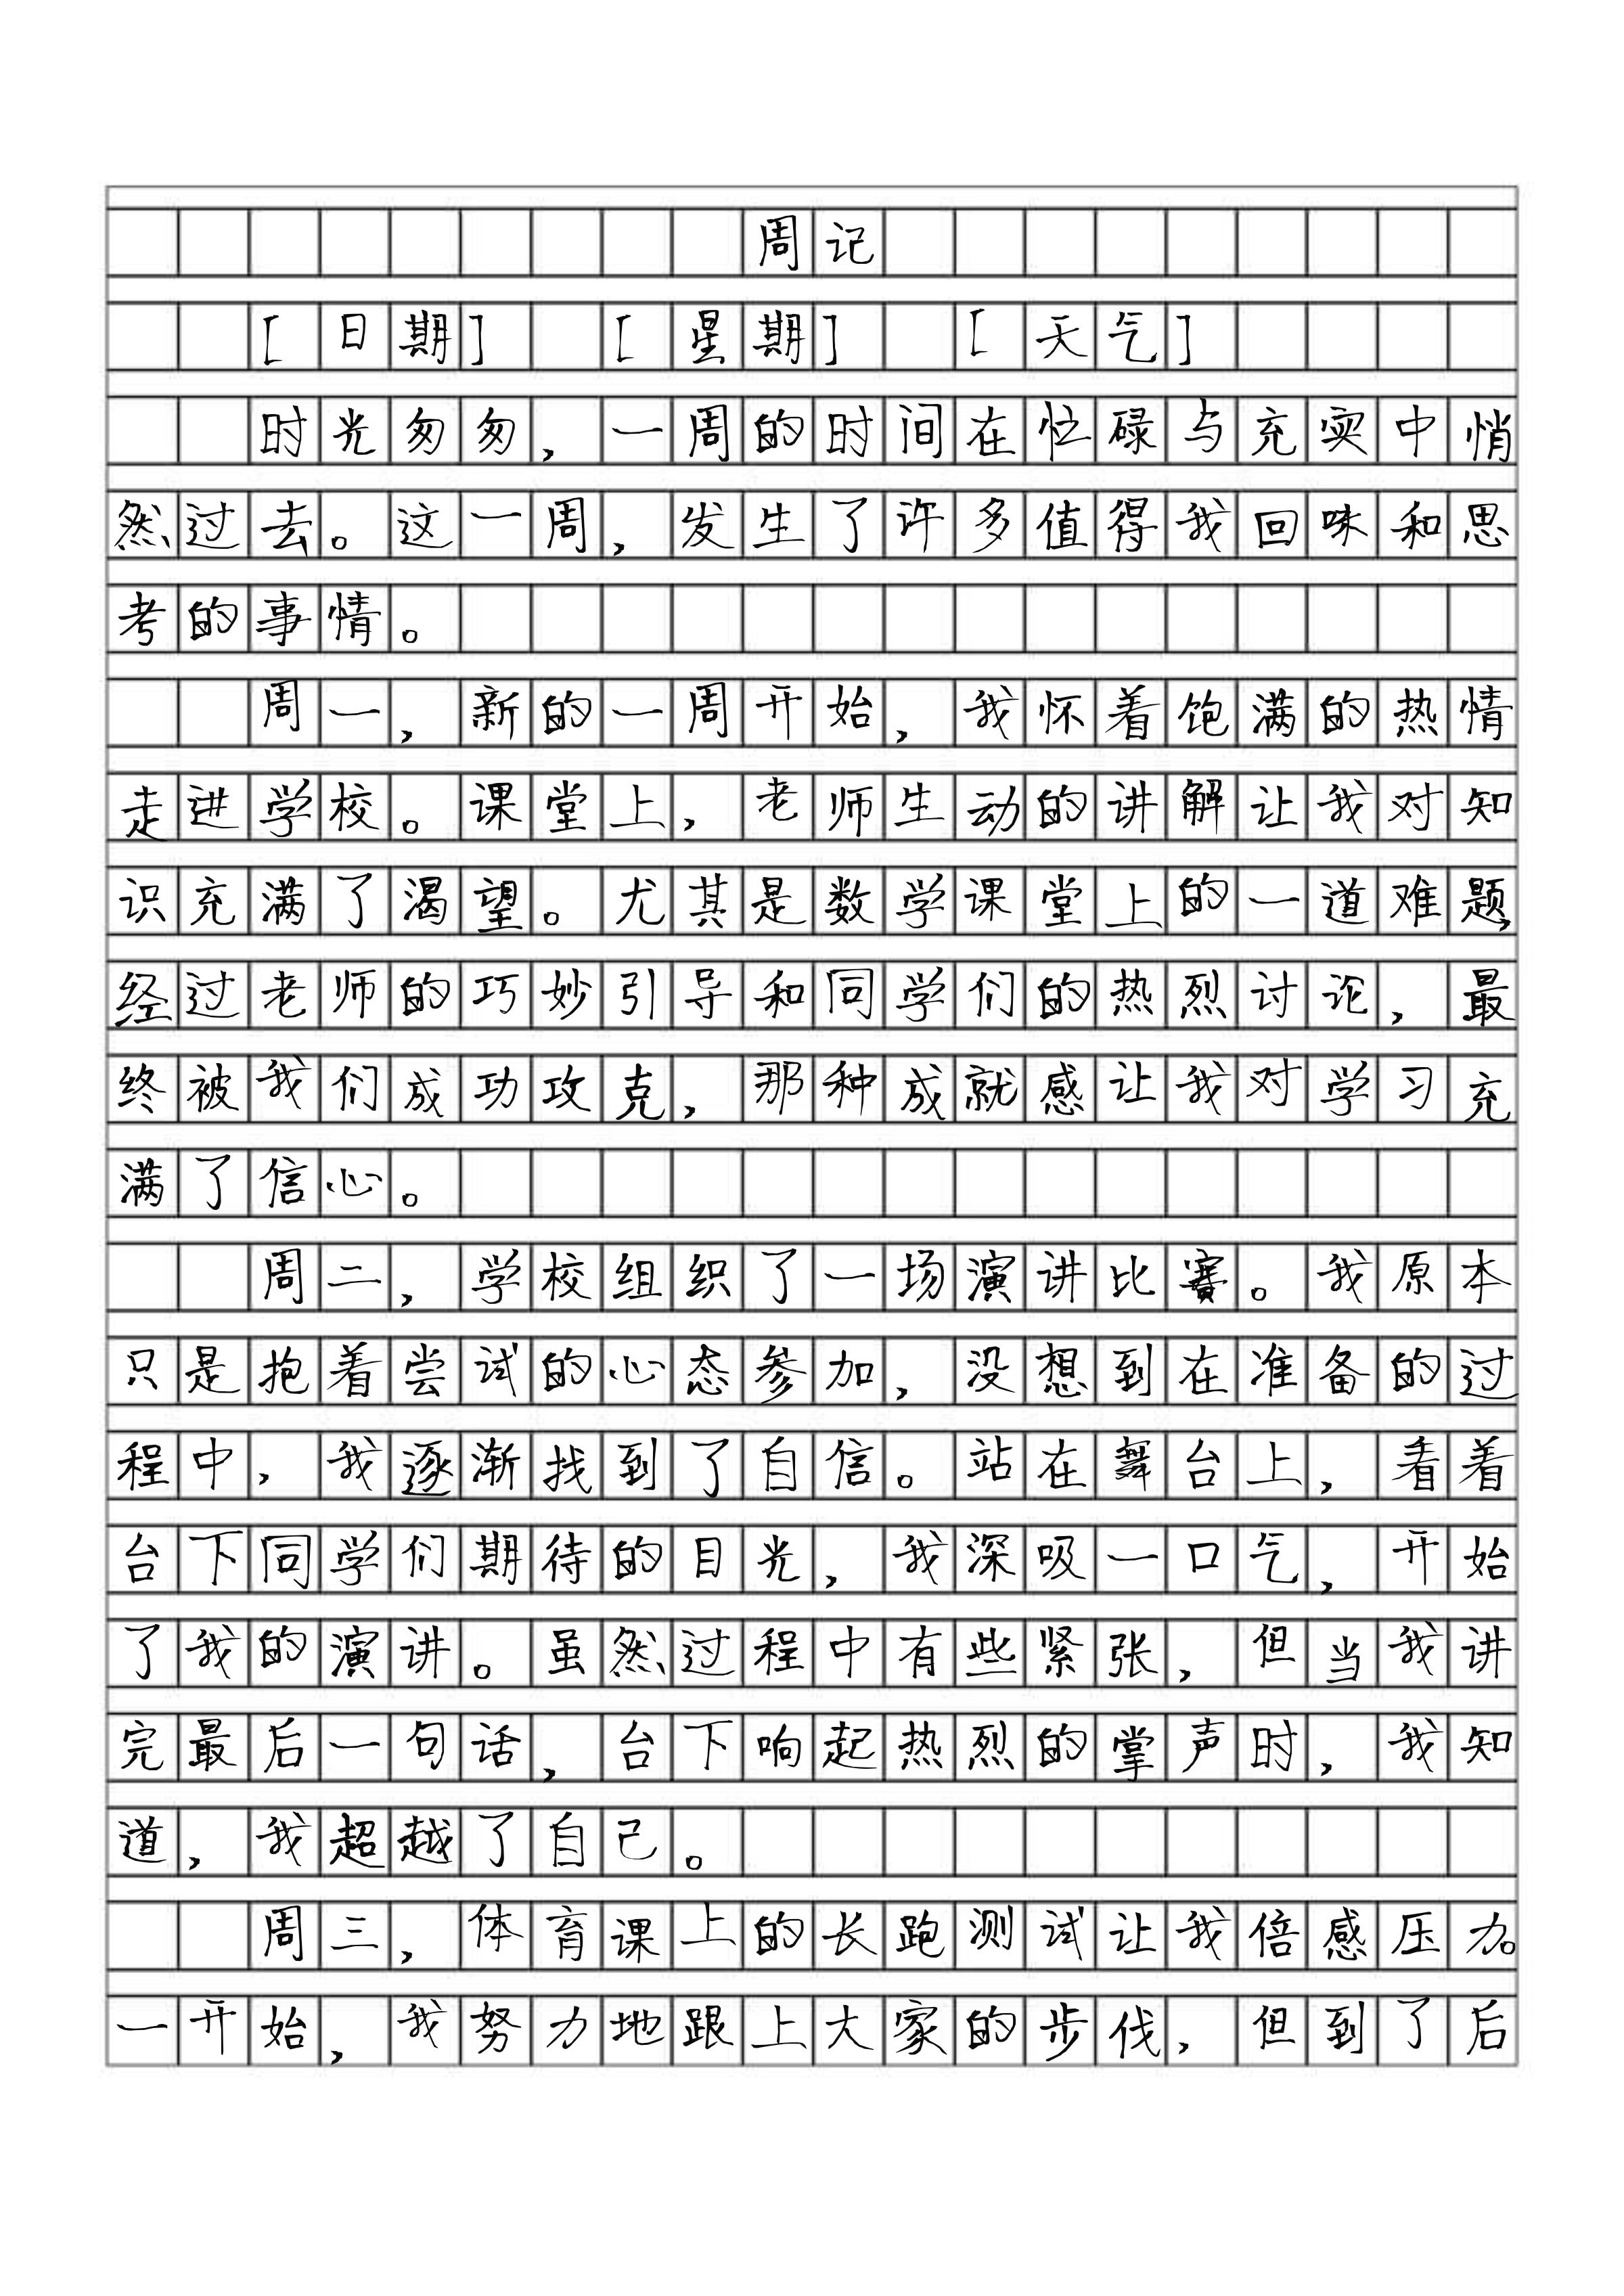 周记
[日期] [星期] [天气]
时光匆匆，一周的时间在忙碌与充实中悄
然过去。这一周，发生了许多值得我回味和思
考的事情。
周一，新的一周开始，我怀着饱满的热情
走进学校。课堂上，老师生动的讲解让我对知
识充满了渴望。尤其是数学课堂上的一道难题，
经过老师的巧妙引导和同学们的热烈讨论，最
终被我们成功攻克，那种成就感让我对学习充
满了信心。
周二，学校组织了一场演讲比赛。我原本
只是抱着尝试的心态参加，没想到在准备的过
程中，我逐渐找到了自信。站在舞台上，看着
台下同学们期待的目光，我深吸一口气，开始
了我的演讲。虽然过程中有些紧张，但当我讲
完最后一句话，台下响起热烈的掌声时，我知
道，我超越了自己。
周三，体育课上的长跑测试让我倍感压力。
一开始，我努力地跟上大家的步伐，但到了后